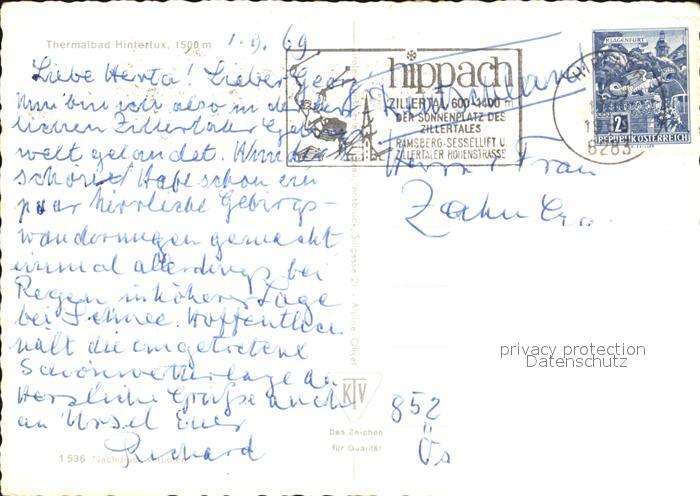 Thermalbad Hintertux, 1500 m
1.9.69.
Liebe Herta! Lieber Georg!
Nun bin ich also in der
lichen Zillertaler
welt gelandet. Wunder
schön! Habe schon ein
paar herrliche Gebirgs-
wanderungen gemacht
einmal allerdings bei
Regen in höherer Lage
bei Schnee. Hoffentlich
hält die eingetretene
Schönwetterlage an
Herzliche Grüße auch
an Ursel Euer
Richard
1536
hippach
ZILLERTAL 600-1400 m
DER SONNENPLATZ DES
ZILLERTALES
RAMSBERG-SESSELLIFT U.
ZILLERTALER HÖHENSTRASSE
KLAGENFURT
2S
REPUBLIK ÖSTERREICH
6283
Herrn u Frau
Zahn
privacy protection
Datenschutz
KTV
Das Zeichen
für Qualität
852
Ös